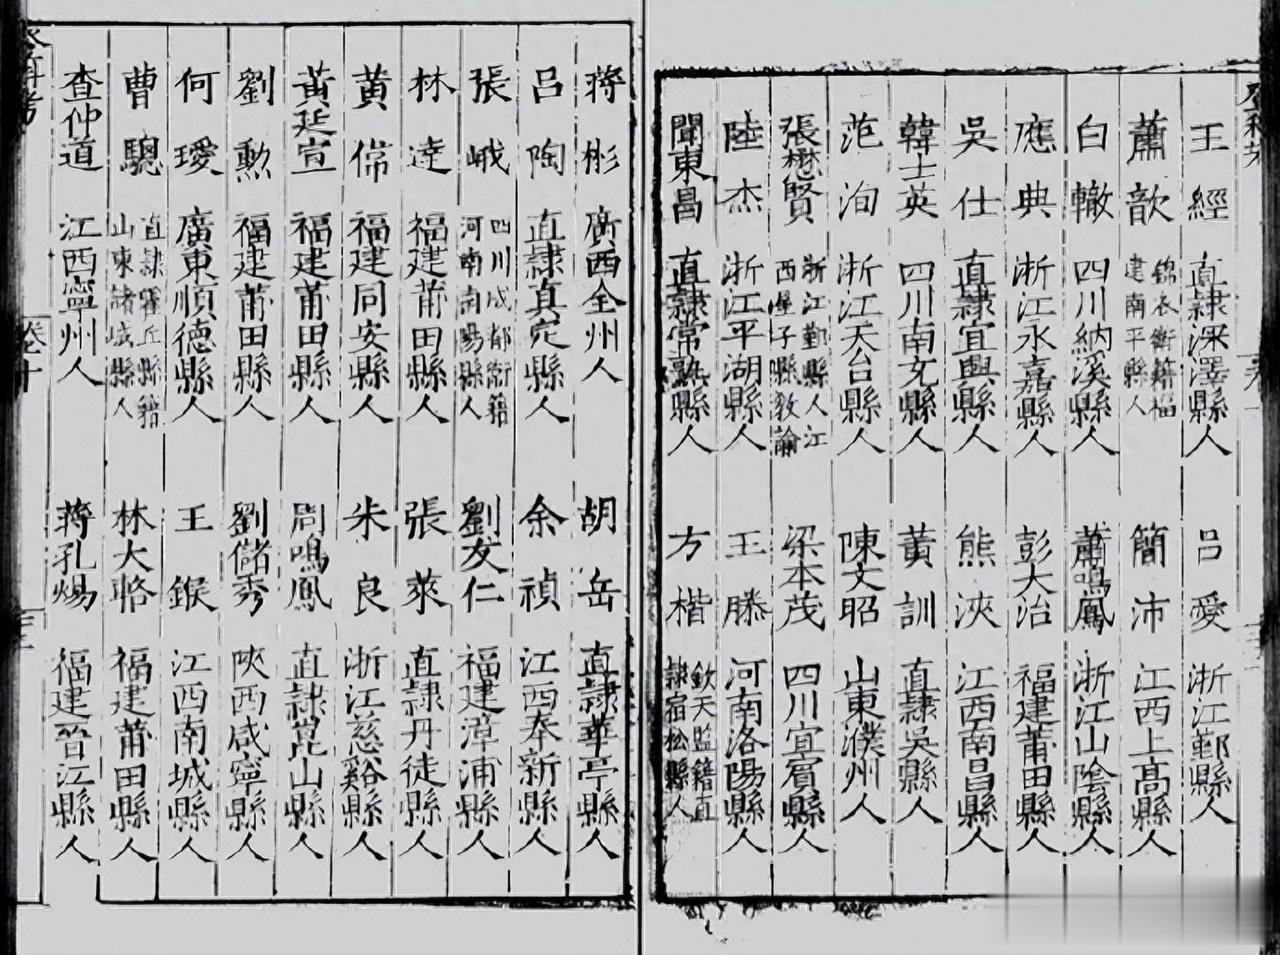 王經 直隷深澤縣人 呂愛 浙江鄞縣人
蕭歆 錦衣衛籍福建南平縣人 簡沛 江西上高縣人
白轍 四川納溪縣人 蕭鳴鳳 浙江山陰縣人
應典 浙江永嘉縣人 彭大治 福建莆田縣人
吳仕 直隷宜興縣人 熊浹 江西南昌縣人
韓士英 四川南充縣人 黃訓 直隷吳縣人
范洵 浙江天台縣人 陳文昭 山東濮州人
張懋賢 浙江鄞縣人江西星子縣教諭 梁本茂 四川宜賓縣人
陸杰 浙江平湖縣人 王滕 河南洛陽縣人
聞東昌 直隷常熟縣人 方楷 欽天監籍直隷宿松縣人
蔣彬 廣西全州人 胡岳 直隷華亭縣人
呂陶 直隷真定縣人 余禎 江西奉新縣人
張峨 四川成都衛籍河南南陽縣人 劉友仁 福建漳浦縣人
林達 福建莆田縣人 張萊 直隷丹徒縣人
黃偉 福建同安縣人 朱良 浙江慈谿縣人
黃延宣 福建莆田縣人 周鳴鳳 直隷崑山縣人
劉勲 福建莆田縣人 劉儲秀 陝西咸寧縣人
何瑷 廣東順德縣人 王鍭 江西南城縣人
曹驄 直隷霍丘縣籍山東諸城縣人 林大輅 福建莆田縣人
查仲道 江西寧州人 蔣孔煬 福建晉江縣人